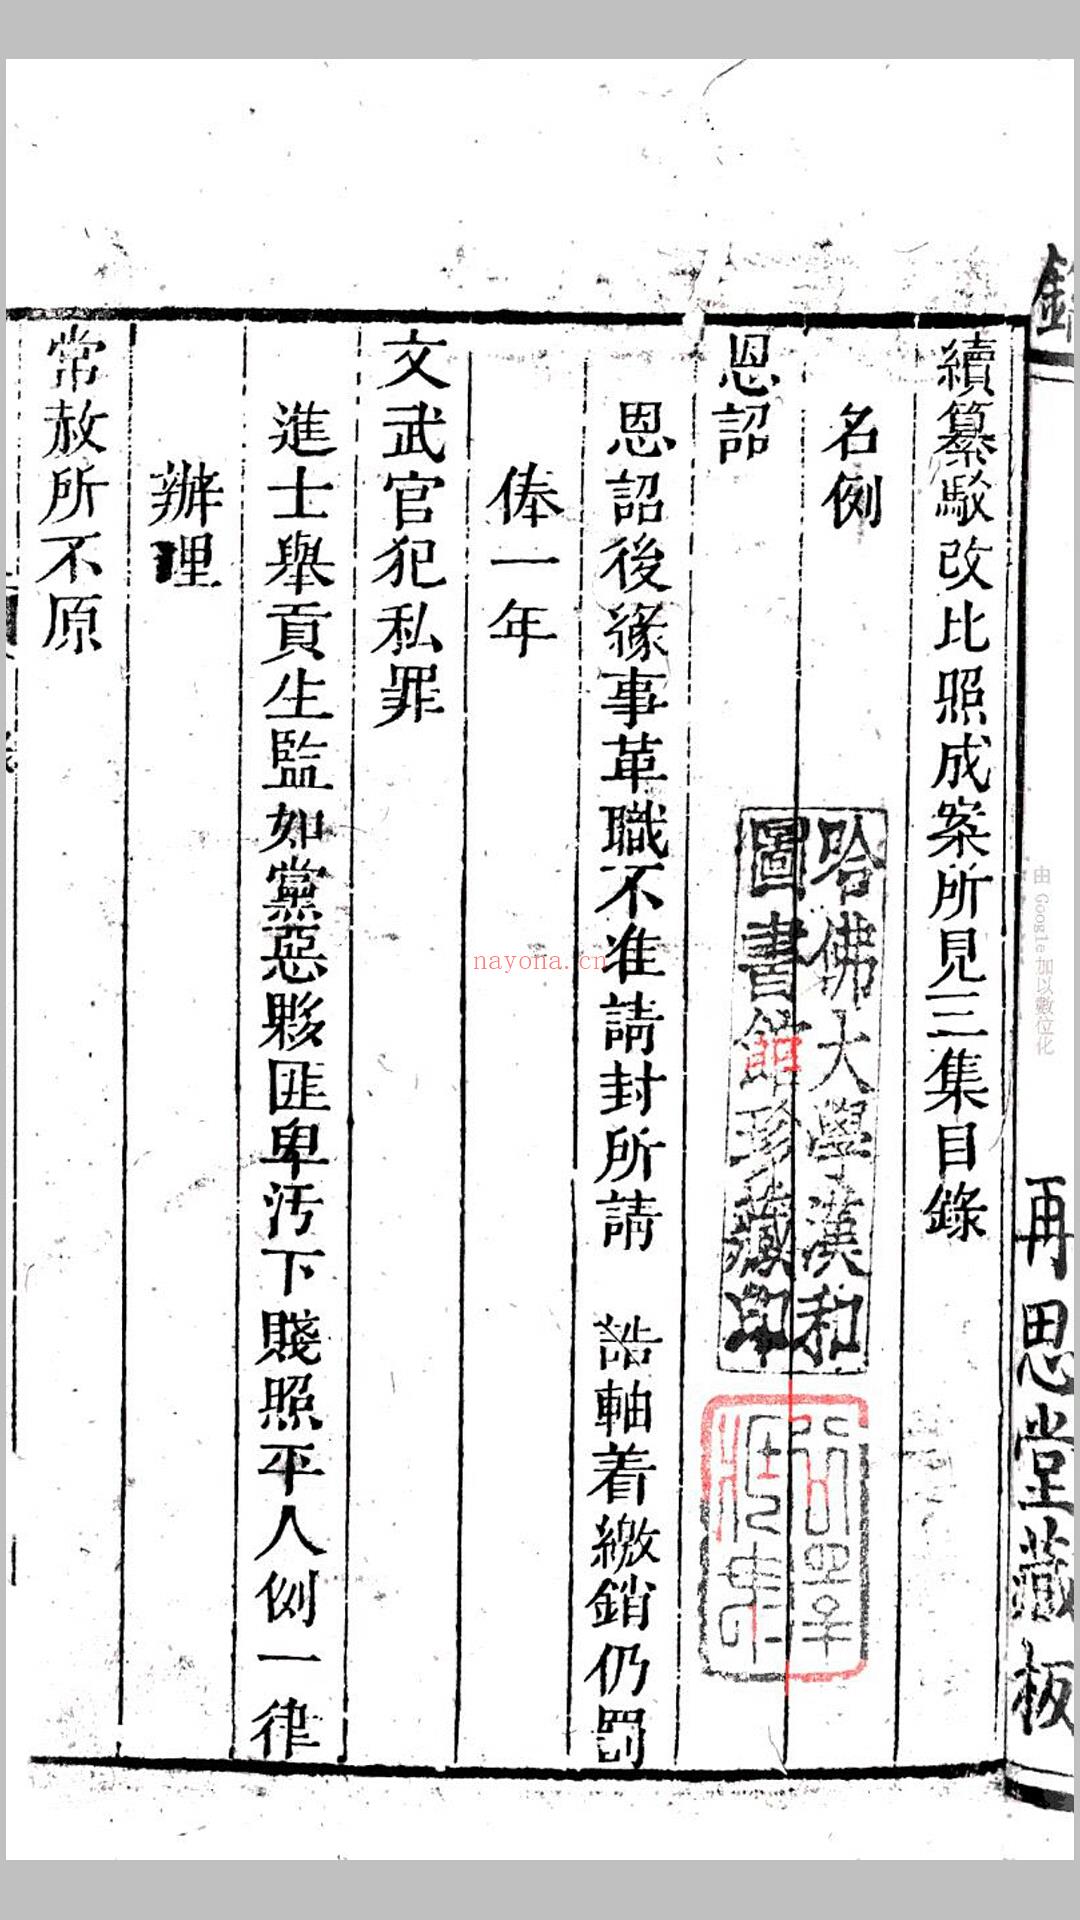 續纂駁改比照成案所見三集目錄
名例
恩詔
恩詔後緣事革職不准請封所請 誥軸着繳銷仍罰
俸一年
文武官犯私罪
進士舉貢生監如黨惡夥匪卑汚下賤照平人例一律
辦理
常赦所不原
再思堂藏板
哈佛大學漢和
圖書館珍藏印
由 Google 加以數位化
nayona.cn